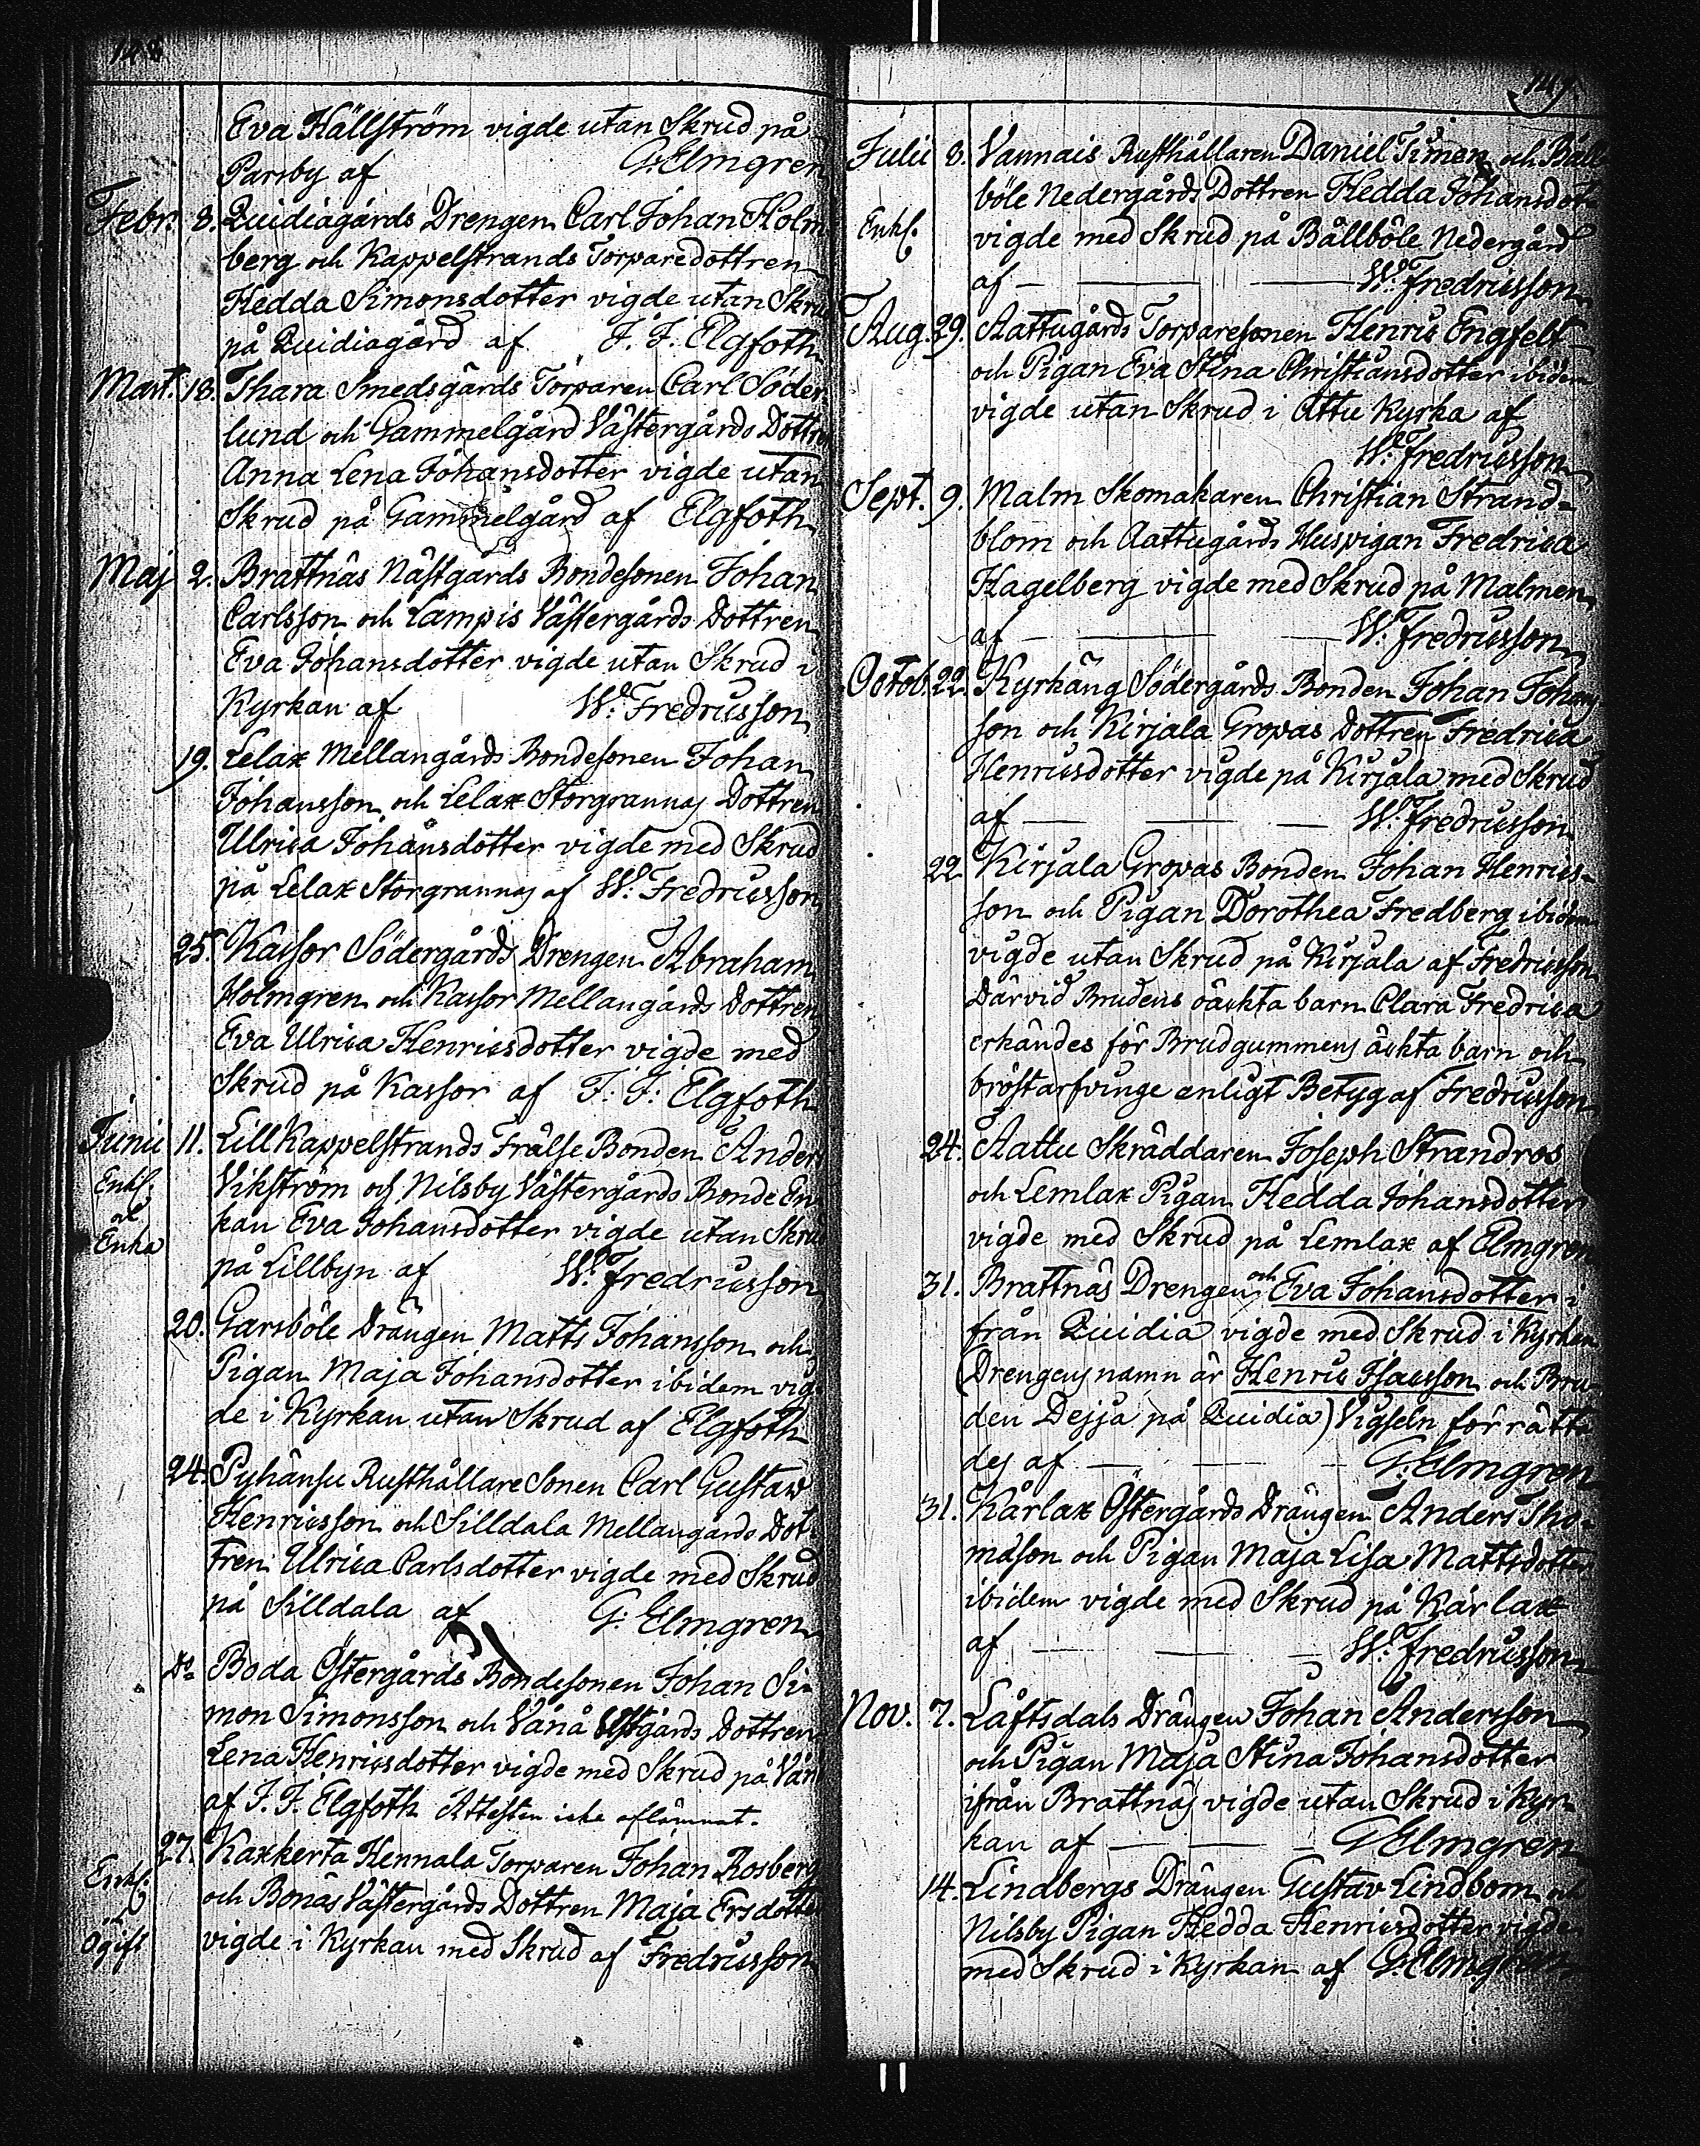 148
Eva Hällström vigde utan Skrud på
Parsby af G: Elmgren
Febr. 8. Quidiagårds Drengen Carl Johan Holm
berg och Kappelstrands Torparedottren
Hedda Simonsdotter vigde utan Skrud
på Quidiagård af J. F. Elgfoth
Mart. 18. Thara Smedsgårds Torparen Carl Söder
lund och Gammelgård Västergårds Dottren
Anna Lena Johansdotter vigde utan
Skrud på Gammelgård af Elgfoth
Maj 2. Brattnäs Nästgårds Bondesonen Johan
Carlsson och Lampis Västergårds Dottren
Eva Johansdotter vigde utan Skrud i
Kyrkan af W: Fredricsson
19. Lelax Mellangårds Bondesonen Johan
Johansson och Lelax Storgrannas Dottren
Ulrica Johansdotter vigde med Skrud
på Lelax Storgrannas af W: Fredricsson
25. Kassor Södergårds Drengen Abraham
Holmgren och Kassor Mellangårds Dottren
Eva Ulrica Henricsdotter vigde med
Skrud på Kassor af J: F: Elgfoth
Junii 11. Lill Kappelstrands Frälse Bonden Anders
Enkl. Vikström och Nilsby Västergårds Bonde En
Enka kan Eva Johansdotter vigde utan Skrud
på Lillbyn af W: Fredricsson
20. Garsböle Drängen Matts Johansson och
Pigan Maja Johansdotter ibidem vig
de i Kyrkan utan Skrud af Elgfoth
24. Pyhänsu Rusthållare Sonen Carl Gustaw
Henricsson och Silldala Mellangårds Dot-
tren Ulrica Carlsdotter vigde med Skrud
på Silldala af G: Elmgren
Do Boda Östergårds Bondesonen Johan Si-
mon Simonsson och Vånå Dottren
Lena Henricsdotter vigde med Skrud på Vån
af J. F. Elgfoth Attesten icke aflämnat.
27. Kaxkerta Hennala Torparen Johan Rosberg
Enkl. och Bonäs Västergårds Dottren Maja Ersdotter
Ogift vigde i Kyrkan med Skrud af Fredricsson
149
Julii 8. Vannais Rusthållaren Daniel Simon och Båll
böle Nedergårds Dottren Hedda Johansdot
Enkl. vigde med Skrud på Bållböle Nedergård
af — W: Fredricsson
Aug. 29. Aattugårds Torparesonen Henric Engfelt
och Pigan Eva Stina Christiansdotter ibidem
vigde utan Skrud i Attu Kyrka af
W: Fredricsson
Sept. 9. Malm Skomakaren Christian Strand-
blom och Aattugårds Huspigan Fredrica
Hagelberg vigde med Skrud på Malmen
af — W: Fredricsson
Octob. 22. Kyrkäng Södergårds Bonden Johan Johans
son och Kirjala Gropas Dottren Fredrica
Henricsdotter vigde på Kirjala med Skrud
af — W: Fredricsson
22 Kirjala Gropas Bonden Johan Henrics-
son och Pigan Dorothea Fredberg ibidem
vigde utan Skrud på Kirjala af Fredricsson
Därvid Brudens oäckta barn Clara Fredrica
erkändes för Brudgummens äckta barn och
bröstarfvinge enligt Betyg af Fredricsson
24. Aattu Skräddaren Joseph Strandros
och Lemlax Pigan Hedda Johansdotter
vigde med Skrud på Lemlax af Elmgren
31. Brattnäs Drengen och Eva Johansdotter i
från Quidia vigde med Skrud i Kyrkan
(Drengens namn är Henric Isacsson och Bru
den Dejja på Quidia) Vigseln förrätta
des af — G: Elmgren
31. Kårlax Östergårds Drängen Anders Tho-
masson och Pigan Maja Lisa Mattsdotter
ibidem vigde med Skrud på Kårlax
af — W: Fredricsson
Nov. 7. Låftsdals Drängen Johan Andersson
och Pigan Maja Stina Johansdotter
ifrån Brattnäs vigde utan Skrud i Kyr-
kan af — G Elmgren
14. Lindbergs Drängen Gustav Lindbom och
Nilsby Pigan Hedda Henricsdotter vigde
med Skrud i Kyrkan af G. Elmgren